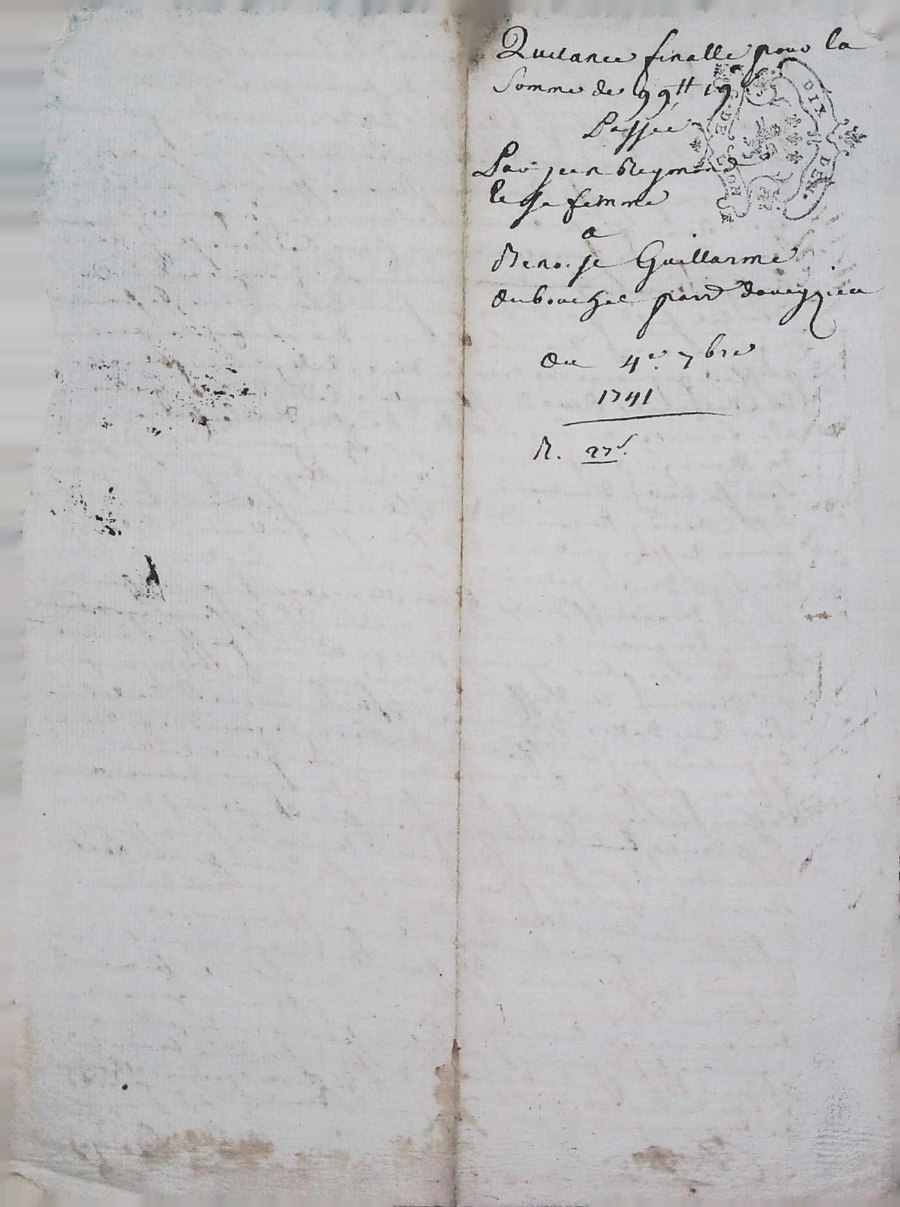 Quitance finalle pour la
Somme de 99tt 19
Passée
Par jean Reymond
le sa femme
a
Benoist Guillarme
du bouchet parr
du 4e 7bre
1741
R. 27s
DIX DEN.
G. DE